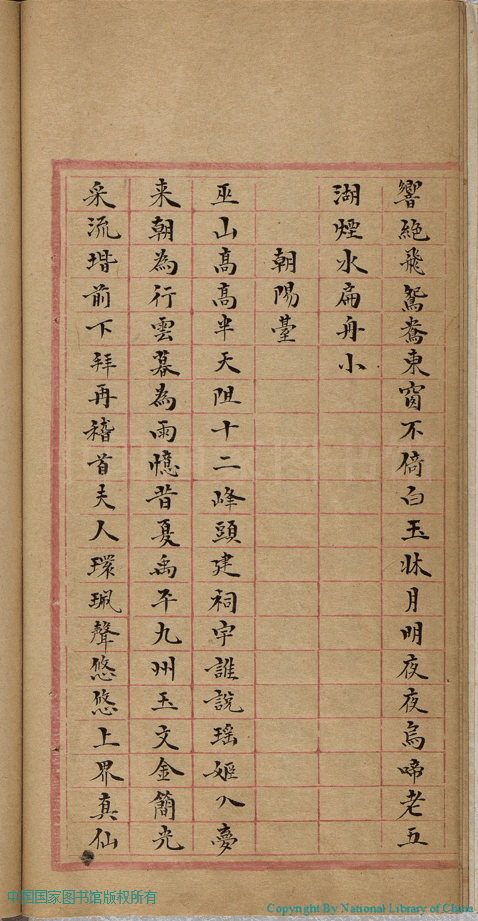 響絶飛鴛鴦東窗不倚白玉牀月明夜夜烏啼老五
湖煙水扁舟小
朝陽臺
巫山高高半天阻十二峰頭建祠宇誰説瑶姬入夢
来朝為行雲暮為雨憶昔夏禹平九州玉文金簡光
采流堦前下拜再稽首夫人環珮聲悠悠上界真仙
中国国家图书馆版权所有
Copyright By National Library of China